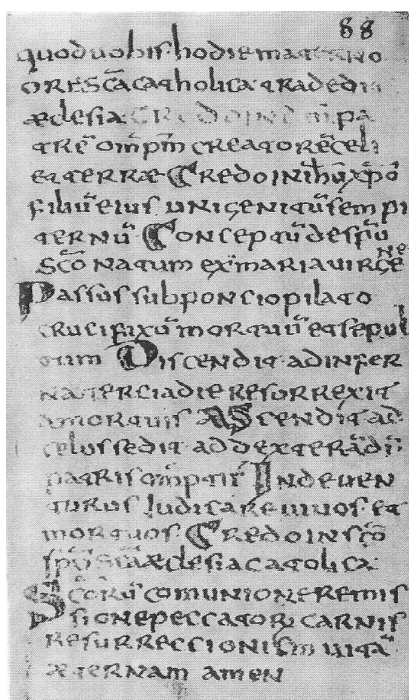 88
quod vobis hodie materno
ore sc̄a catholica tradedit
æclesia Credo in dm̄ pa
trē omp̄m creatorē celi
et terræ Credo in ih̄ū xp̄o
filiū eius unigenitū sempi
ternū Conceptū de sp̄u
sc̄o natum ex maria virgene
Passus sub poncio pilato
crucifixū mortuū et sepul
tum Discendit ad infer
na tercia die resurrexit
a mortuis Ascendit ad
celus sedit ad dexterā dī
patris omp̄tis Inde ven
turus Iudicare vivos et
mortuos Credo in sc̄o
sp̄u sc̄a æclesia catolica
Sc̄orū comunione remis
sione peccatorū carnis
resurreccionis in vitā
æternam amen